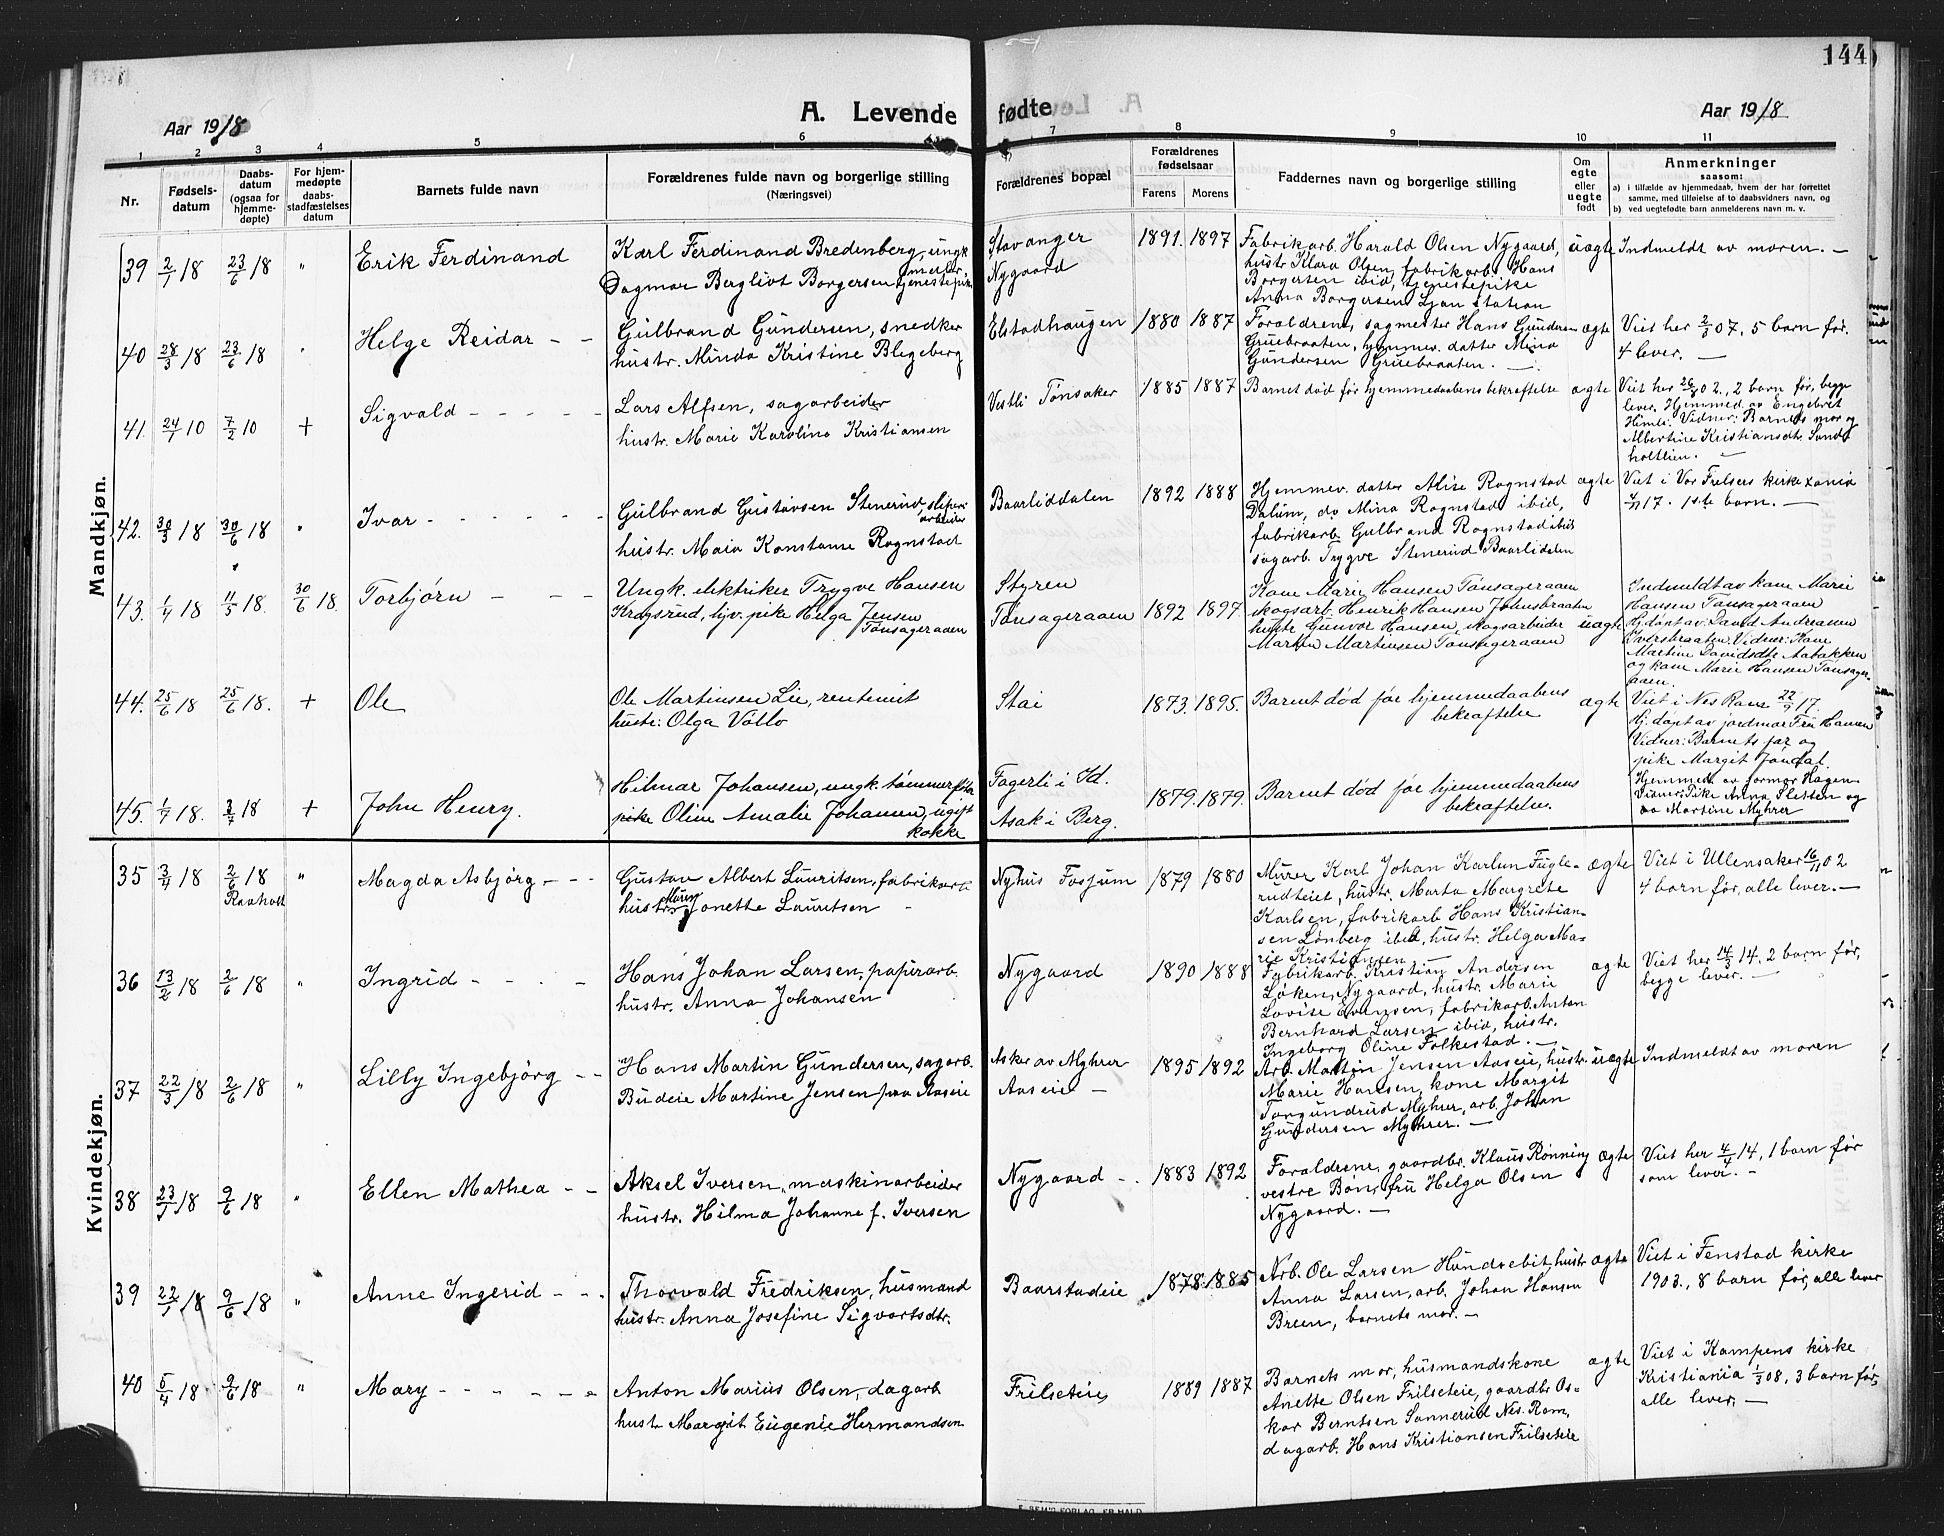 144
Aar 1918
A. Levende fødte
Aar 1918
1 2 3 4 5 6 7 8 9 10 11
Nr.
Fødsels-
datum
Daabs-
datum
(ogsaa for
hjemme-
døpte)
For hjem-
medøpte
daabs-
stadfæstelses
datum
Barnets fulde navn
Forældrenes fulde navn og borgerlige stilling
(Næringsvei)
Forældrenes bopæl
Forældrenes
fødselsaar
Farens Morens
Faddernes navn og borgerlige stilling
Om
egte
eller
uegte
født
Anmerkninger
saasom:
a) i tilfælde av hjemmedaab, hvem der har forrettet
samme, med tilføielse af to daabsvidners navn, og
b) ved uegtefødte barn anmelderens navn m. v.
Mandkjøn.
39 2/1 18 23/6 18 "
Erik Ferdinand
Karl Ferdinand Bredenberg, ungk.
Dagmar Bergliot Borgersen tjenestepike
Stavanger
Nygaard
1891. 1897
Fabrikarb. Harald Olsen Nygaard,
hustr. Klara Olsen, fabrikarb. Hans
Borgersen ibid, tjenestepike
Anna Borgersen Ljan station
uægte
Indmeldt av moren. —
40 28/3 18 23/6 18 "
Helge Reidar - -
Gulbrand Gundersen, snedker
hustr. Minda Kristine Blegeberg
Elstadhaugen
1880 1887
Forældrene, sagmester Hans Gundersen
Gruebraaten, hjemmev. datter Mina
Gundersen Gruebraaten. —
ægte
Viet her 2/3 07, 5 barn før.
4 lever. —
41. 24/1 10 7/2 10 +
Sigvald - - - - -
Lars Alfsen, sagarbeider
hustr. Marie Karoline Kristiansen
Vestli Tønsaker
1885 1887
Barnet død før hjemmedaabens bekræftelse
ægte
Viet her 26/ 02., 2 barn før, begge
lever. Hjemmed. av Engebret
Himli. Vidner: Barnets mor og
Albertine Kristiansdtr. Sund-
holtlien. —
42. 30/3 18 30/6 18 "
Ivar - - - - - -
Gulbrand Gustavsen Stenerud, sliperi-
arbeider
hustr. Maia Konstanse Rognstad
Baarliddalen
1892 1888
Hjemmev. datter Alise Rognstad
Dalum, do Mina Rognstad ibid,
fabrikarb. Gulbrand Rognstad ibid
sagarb. Trygve Stenerud Baarlidalen
ægte
Viet i Vor Frelsers kirke xania
17. 1ste barn. —
43. 1/4 18 11/5 18. 30/6 18.
Torbjørn - - -
Ungk. elektriker Trygve Hansen
Kragsrud, hjv. pike Helga Jensen
Tønsageraaen
Styren
Tønsageraaen
1892 1897.
Kone Marie Hansen Tønsageraaen
skogsarb. Henrik Hansen Johnsbraaten
hustr. Gunvor Hansen, skogsarbeider
Martin Martinsen Tønsageraaen
uægte
Indmeldt av kone Marie
Hansen Tønsageraaen
Hj.døpt av: David Andreasen
Iversbraaten. Vidner: Kone
Martine Davidsdtr Aabakken
og kone Marie Hansen Tønsager-
aaen.
44. 25/6 18 25/6 18. +
Ole
Ole Martinsen Lie, rentenist
hustr: Olga Vollo
Stai
1873. 1895.
Barnet død før hjemmedaabens
bekræftelse
ægte
Viet i Nes Rom. 22/9 17.
Hj. døpt av jordmor Fru Hansen
Vidner: Barnets far og
pike Margit Jondal.
45. 1/7 18. 3/7 18 +
John Henry.
Hilmar Johansen, ungk. tømmerfl.
pike Oline Amalie Johansen, ugift
kokke
Fagerli i Id.
Asak i Berg.
1879. 1879.
Barnet død før hjemmedaabens
bekræftelse.
Hjemmed. av formor Hagen
Vidner: Pike Anna Sletten og
do Martine Myhrer
Kvindekjøn.
35 3/4 18 2/6 18 "
Raaholt
Magda Asbjørg - - -
Gustav Albert Lauritsen, fabrikarb.
hustr. Maren Jonette Lauritsen -
Nyhus Fosjum
1879 1880
Murer Karl Johan Karlsen Fugle-
rudteiet, hustr. Marta Margrete
Karlsen, fabrikarb Hans Kristian-
sen Lønberg ibid, hustr. Helga Ma-
rie Kristiansen —
ægte
Viet i Ullensaker 16/11 02
4 barn før, alle lever. —
36 13/2 18 2/6 18 "
Ingrid - - - -
Hans Johan Larsen, papirarb.
hustr. Anna Johansen
Nygaard
1890 1888
Fabrikarb. Kristian Andersen
Løken, Nygaard, hustr. Marie
Lovise Evensen, fabrikarb. Anton
Bernhard Larsen ibid, hustr.
Ingeborg Oline Folkestad. —
ægte
Viet her 14/3 14, 2 barn før,
begge lever. —
37 22/3 18 2/6 18 "
Lilly Ingebjørg - -
Hans Martin Gundersen, sagarb.
Budeie Martine Jensen paa Aaseie
Asker av Myhrer
Aaseie —
1895 1892
Arb. Martin Jensen Aaseie, hustr.
Marie Hansen, kone Margit
Torgundrud Myhrer, arb. Johan
Gundersen Myhrer. —
uægte
Indmeldt av moren
38 23/1 18 9/6 18 "
Ellen Mathea - -
Aksel Iversen, maskinarbeider
hustr. Hilma Johanne f. Iversen
Nygaard - -
1883 1892
Forældrene, gaardbr. Klaus Rønning
vestre Bøn, fru Helga Olsen
Nygaard. —
ægte
Viet her 4/4 14, 1 barn før
som lever. —
39 22/1 18 9/6 18 "
Anne Ingerid - - -
Thorvald Fredriksen, husmand
hustr. Anna Josefine Sigvartsdtr.
Baarstadeie
1878. 1885
Arb. Ole Larsen Hundsebit, hustr.
Anna Larsen, arb. Johan Hansen
Breen, barnets mor. —
ægte
Viet i Fenstad kirke
1903., 8 barn før, alle lever
40 5/4 18 9/6 18 "
Mary - - - - - -
Anton Marius Olsen, dagarb
hust. Margit Eugenie Hermandsen
Frilseteie
1889 1887
Barnets mor, husmandskone
Anette Olsen Frilseteie, gaardbr. Os-
kar Berntsen Sannerud Nes. Rom,
dagarb. Hans Kristiansen Frilseteie
ægte
Viet i Kampens kirke
Kristiania 1/3 08, 3 barn før,
alle lever. —